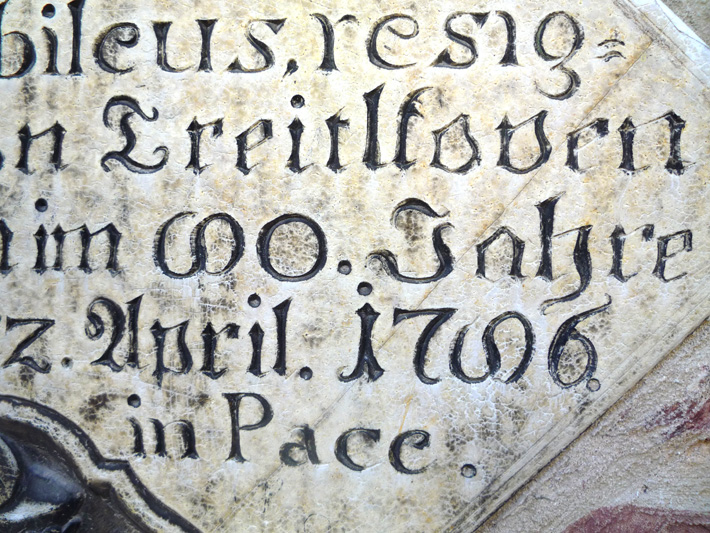 bileus, resig=
n Treitlkoven
im 80. Jahre
2. April. 1786.
in Pace.